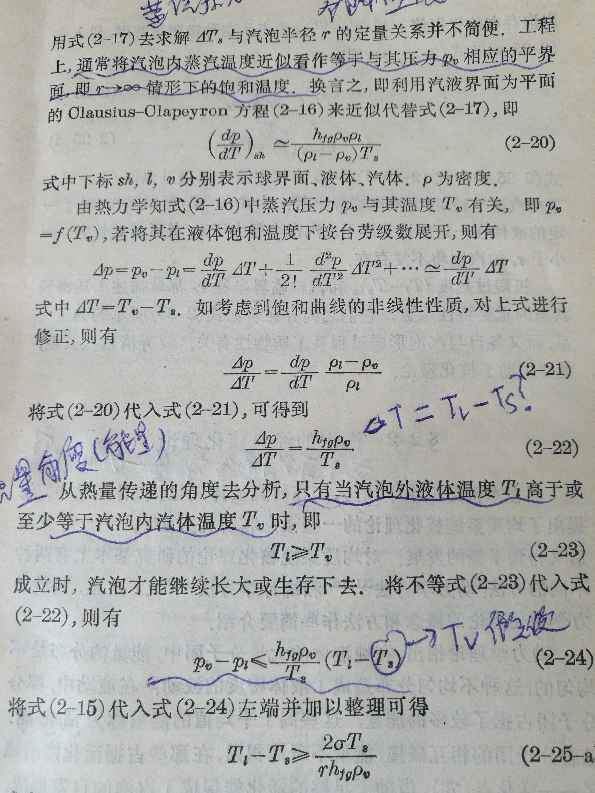 用式(2-17)去求解 ΔTₛ 与汽泡半径 r 的定量关系并不简便. 工程
上,通常将汽泡内蒸汽温度近似看作等于与其压力 pᵥ 相应的平界
面,即 r→∞ 情形下的饱和温度. 换言之,即利用汽液界面为平面
的 Clausius-Clapeyron 方程(2-16)来近似代替式(2-17),即
(dp/dT)ₛₕ ≃ h_fg ρᵥρₗ/((ρₗ-ρᵥ)Tₛ) (2-20)
式中下标 sh, l, v 分别表示球界面、液体、汽体. ρ 为密度.
由热力学知式(2-16)中蒸汽压力 pᵥ 与其温度 Tᵥ 有关, 即 pᵥ
=f(Tᵥ),若将其在液体饱和温度下按台劳级数展开,则有
Δp=pᵥ-pₗ= dp/dT ΔT+ 1/2! d²p/dT² ΔT²+⋯≃ dp/dT ΔT
式中 ΔT=Tᵥ-Tₛ. 如考虑到饱和曲线的非线性性质,对上式进行
修正,则有
Δp/ΔT = dp/dT (ρₗ-ρᵥ)/ρₗ (2-21)
将式(2-20)代入式(2-21),可得到
ΔT=Tₗ-Tₛ?
Δp/ΔT = h_fg ρᵥ/Tₛ (2-22)
角度(能量)
从热量传递的角度去分析,只有当汽泡外液体温度 Tₗ 高于或
至少等于汽泡内汽体温度 Tᵥ 时,即
Tₗ≥Tᵥ (2-23)
成立时, 汽泡才能继续长大或生存下去. 将不等式(2-23)代入式
(2-22),则有
→Tᵥ
pᵥ-pₗ≤ h_fg ρᵥ/Tₛ (Tₗ-Tₛ) (2-24)
将式(2-15)代入式(2-24)左端并加以整理可得
Tₗ-Tₛ≥ 2σTₛ/(r h_fg ρᵥ) (2-25-a